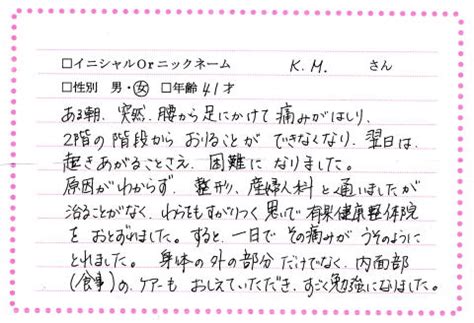 □イニシャルOrニックネーム K.M. さん
□性別 男・女 □年齢 41才
ある朝、突然、腰から足にかけて痛みがはしり、
2階の階段からおりることができなくなり、翌日は、
起きあがることさえ、困難になりました。
原因がわからず、整形、産婦人科と通いましたが
治ることがなく、わらをもすがりつく思いで有果健康整体院
をおとずれました。すると、一日でその痛みがうそのように
とれました。身体の外の部分だけでなく、内面部
(食事)の、ケアーもおしえていただき、すごく勉強になりました。